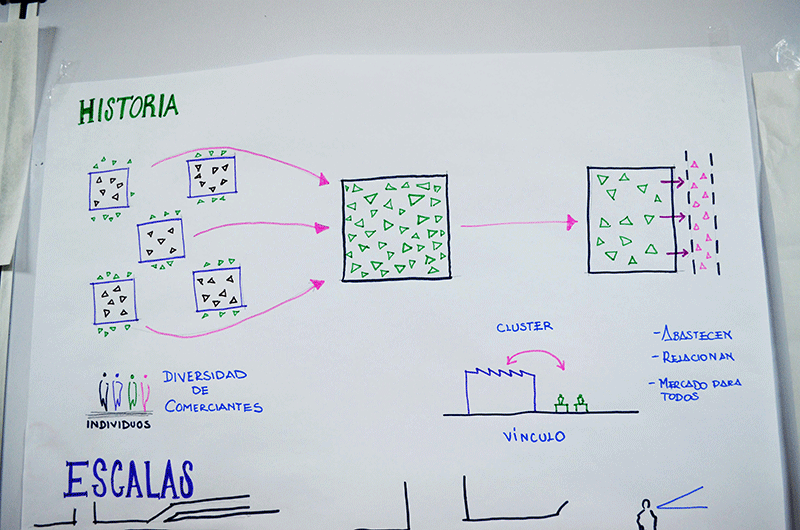 HISTORIA
CLUSTER
- ABASTECEN
- RELACIONAN
- MERCADO PARA
TODOS
DIVERSIDAD
DE
COMERCIANTES
INDIVIDUOS
VÍNCULO
ESCALAS